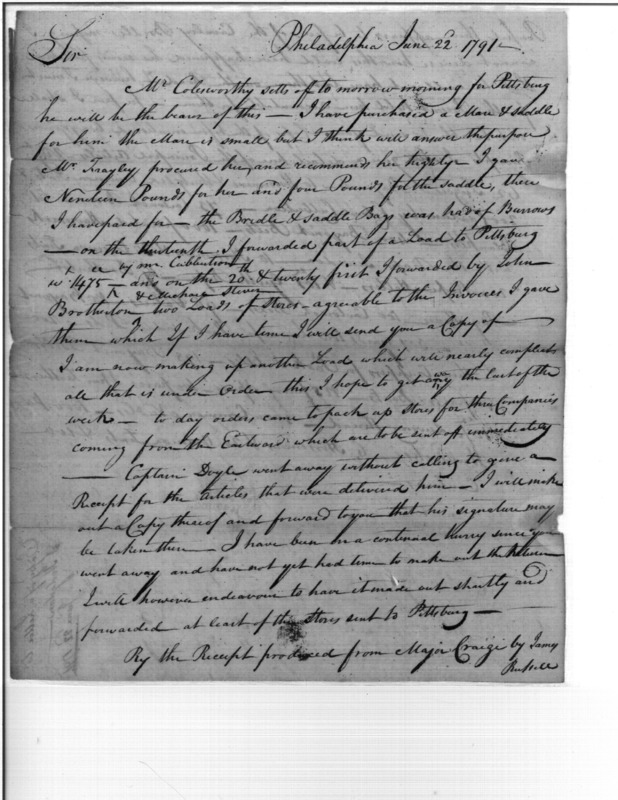 Philadelphia June 22d 1791
Sir
Mr. Colesworthy setts off to morrow morning for Pittsburg
he will be the bearer of this — I have purchased a Mare & saddle
for him the Mare is small but I think will answer the purpose
Mr. Frayley procured her, and recommends her highly I gave
Nineteen Pounds for her and four Pounds for the saddle, these
I have paid for — the Bridle & saddle Bags was had of Burrows
— on the thirteenth I forwarded part of a Load to Pittsburg
by Mr. Cubbertson
wt 1475 — and on the 20th & twenty first I forwarded by John
& Michael Stever
Brotherton two Loads of Stores agreable to the Invoices I gave
them which If I have time I will send you a Copy of —
I am now making up another Load which will nearly compleat
all that is under Order this I hope to get away the last of the
week — to day orders came to pack up stores for three Companies
coming from the Eastward which are to be sent off immediately
— Captain Doyle went away without calling to give a
Receipt for the Articles that were delivered him — I will make
out a Copy thereof and forward to you that his signature may
be taken there — I have been in a continual hurry since you
went away and have not yet had time to make out the Return
I will however endeavour to have it made out shortly and
forwarded at least of the Stores sent to Pittsburg —
By the Receipt produced from Major Craige by James
Russell